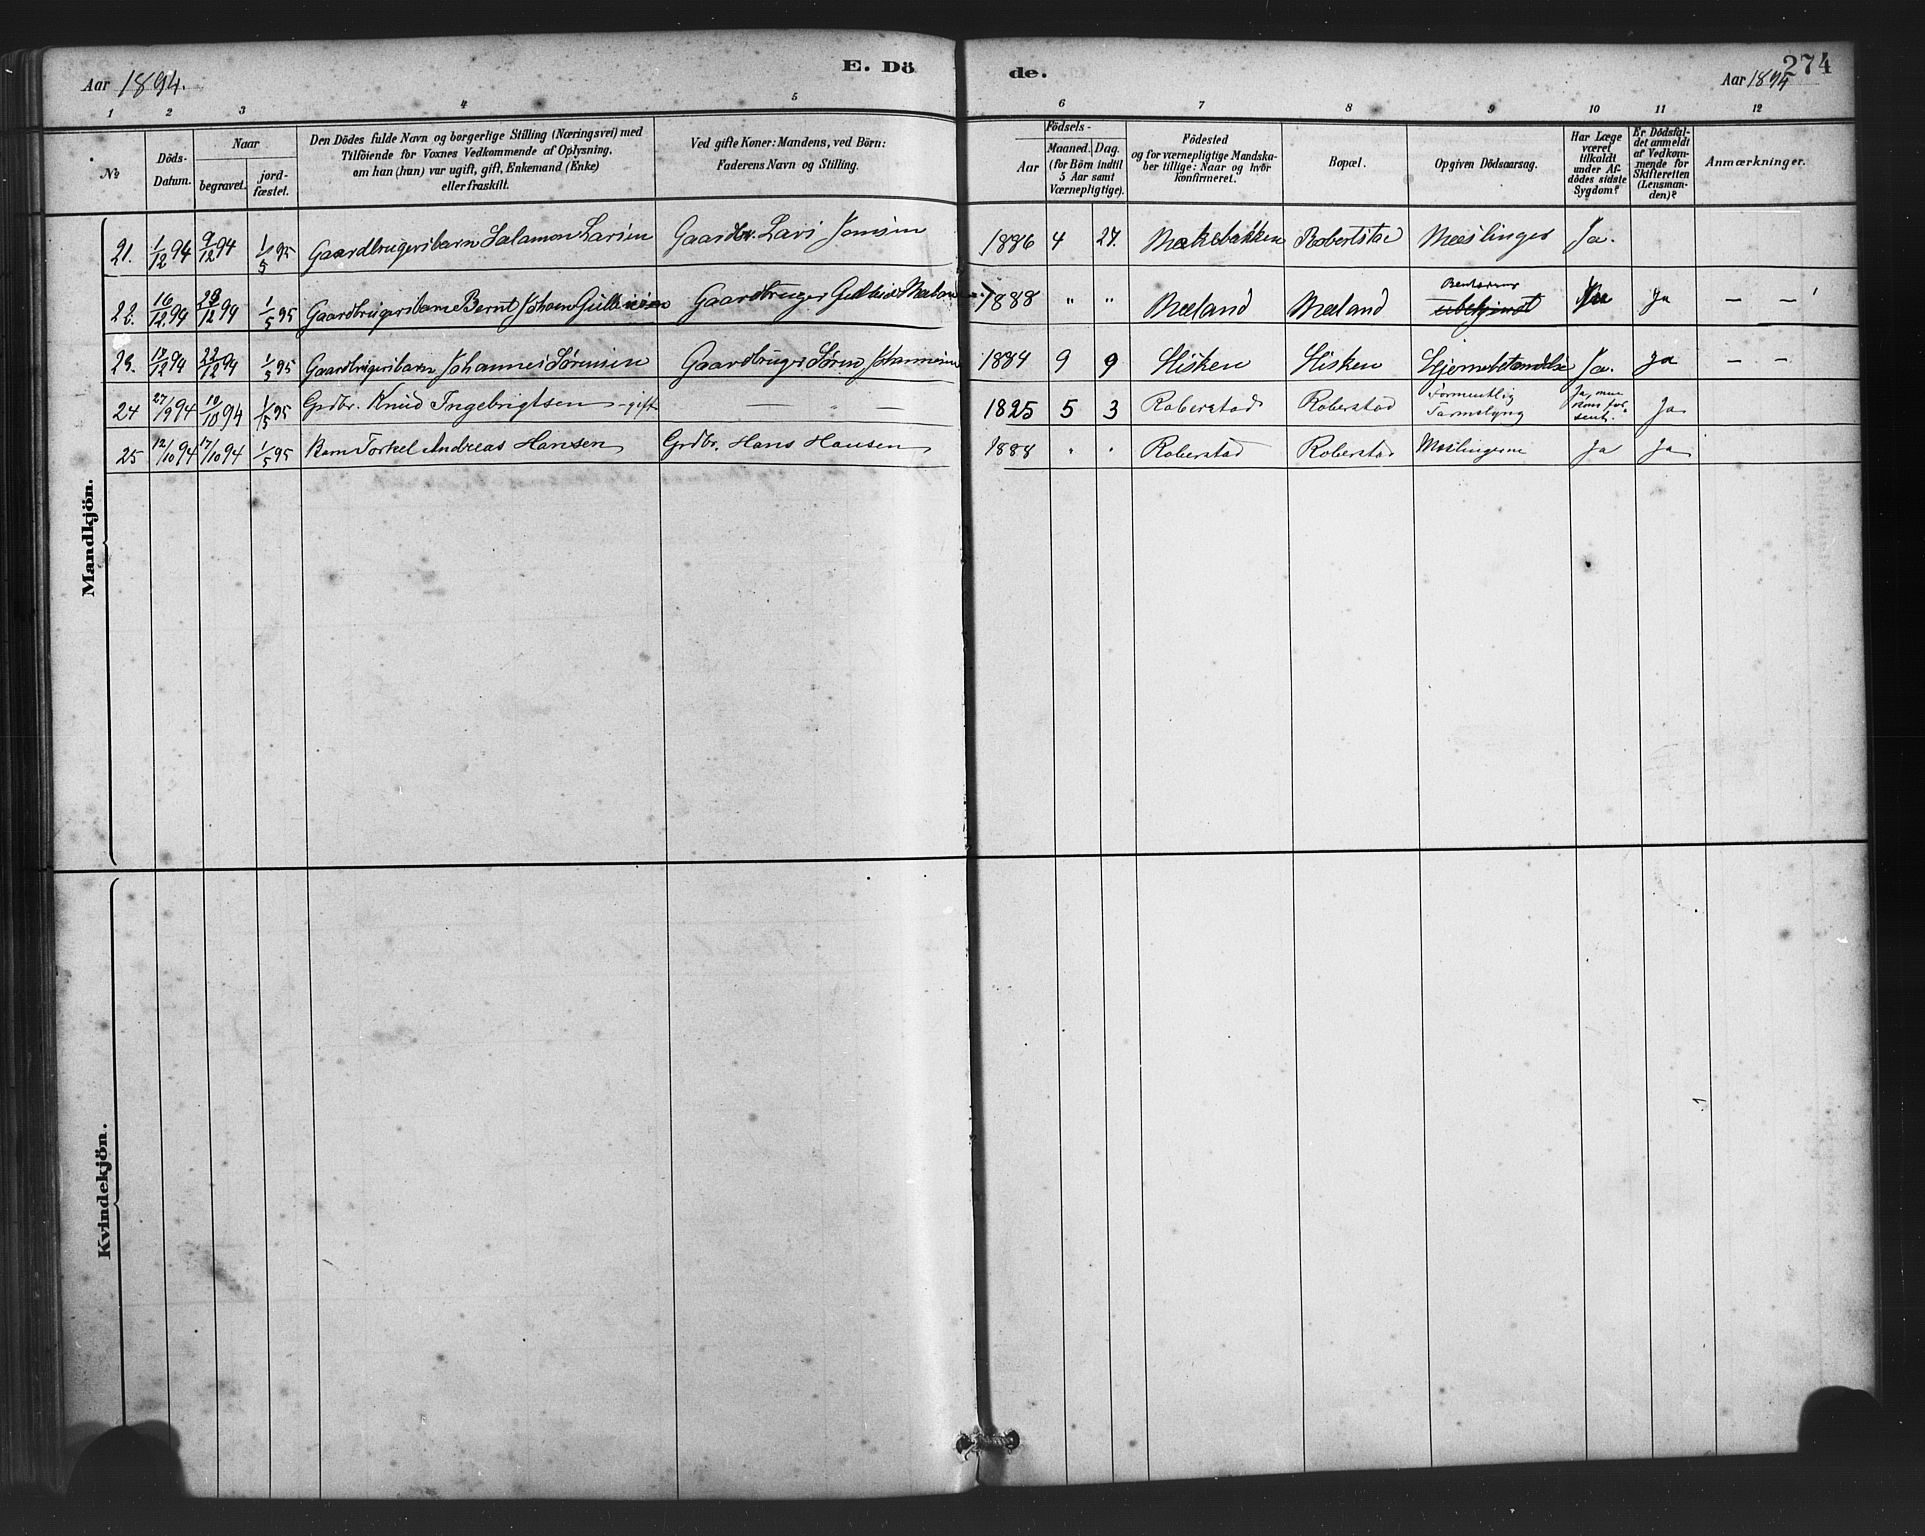 Aar 1894.
E. Dö
de.
Aar 1894
274
1 2 3 4 5 6 7 8 9 10 11 12
No
Döds-
Datum.
Naar
begravet.
jord-
fæstet.
Den Dödes fulde Navn og borgerlige Stilling (Næringsvei) med
Tilföiende for Voxnes Vedkommende af Oplysning,
om han (hun) var ugift, gift, Enkemand (Enke)
eller fraskilt.
Ved gifte Koner: Mandens, ved Börn:
Faderens Navn og Stilling.
Födsels-
Aar
Maaned. Dag.
(for Börn indtil
5 Aar samt
Værnepligtige).
Födested
og for værnepligtige Mandska-
ber tillige: Naar og hvor
konfirmeret.
Bopæl.
Opgiven Dödsaarsag.
Har Læge
været
tilkaldt
under Af-
dödes sidste
Sygdom?
Er Dödsfal-
det anmeldt
af Vedkom-
mende for
Skifteretten
(Lensman-
den)?
Anmærkninger.
Mandkjön.
21. 1/12 94 9/12 94 1/5 95 Gaardbrugersbarn Salamon Larsen Gaardbr. Lars Jonsen 1886 4 27. Robertstad Mæslinger Ja.
22. 16/12 94 1/5 95 Gaardbrugersbarn Bernt Johan Gaardbruger 1888 " " Mæland Mæland ubekjendt Ja — —
23. 22/12 94 1/5 95 Gaardbrugersbarn Johannes Sørensen Gaardbruger Søren Johannesen 1884 9 9 Hisken Hisken Hjernebetændelse Ja. Ja — —
24 27/9 94 10/10 94 1/5 95 Grdbr. Knud Ingebrigtsen - gift — " — 1825 5 3 Roberstad Roberstad Formentlig
Tarmslyng Ja, men
kom for
sent. Ja
25 12/10 94 17/10 94 1/5 95 Barn Torkel Andreas Hansen Grdbr. Hans Hansen 1888 " " Roberstad Roberstad Mæslingerne Ja Ja
Kvindekjön.